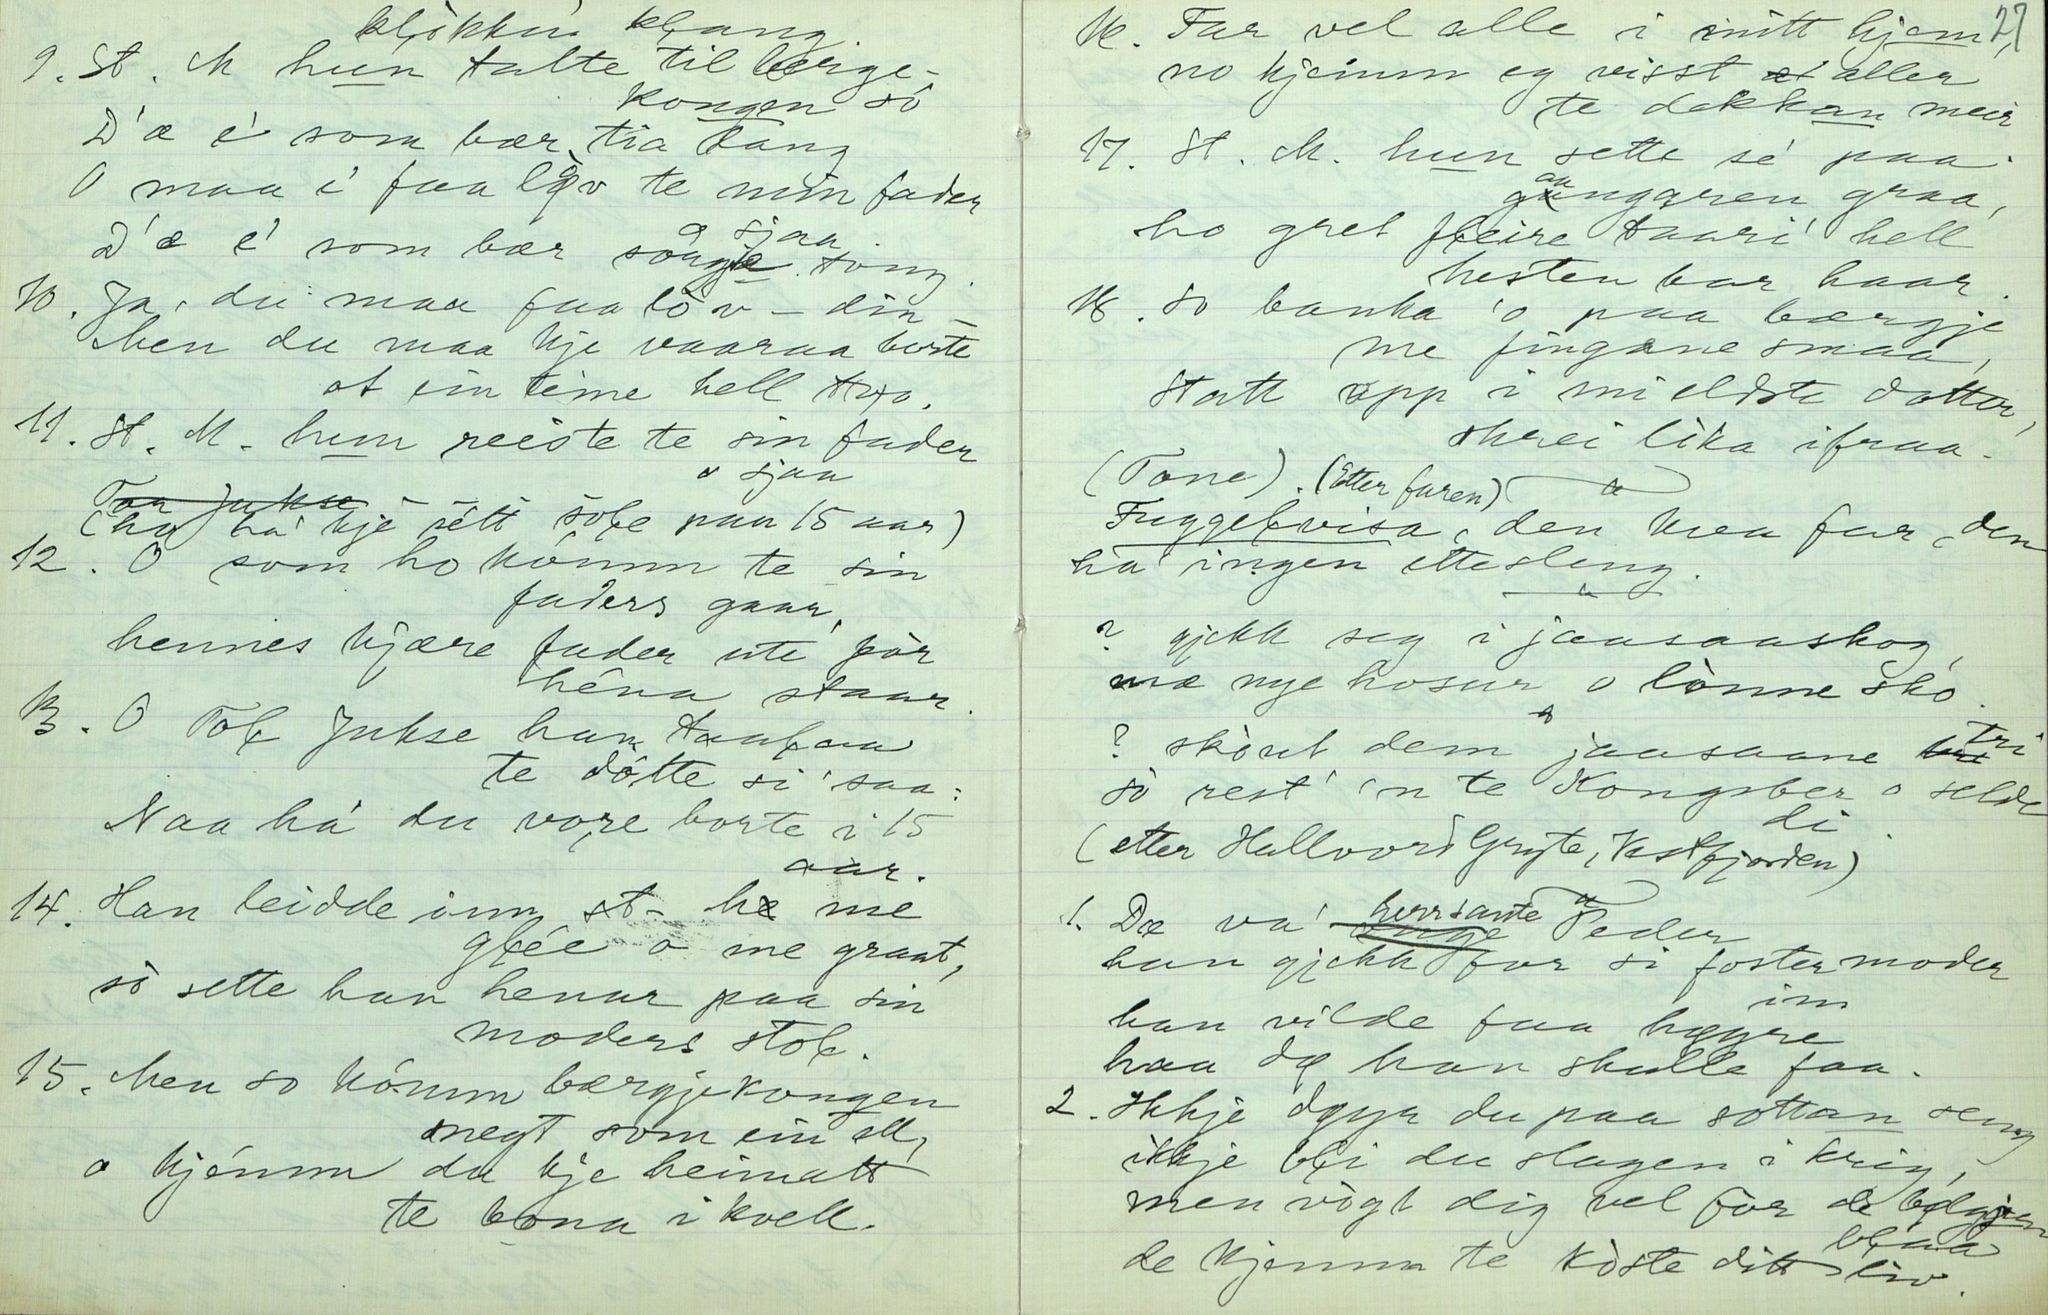 kłòkkus kłang.
9. St. M hun talte til berge-
kongen so
D'æ e' som bær tia lang
O maa e' faa lǫv te min fader
o sjaa.
D'æ e' som bær sòrgje tong.
10. Ja, du maa faa lòv – din –
Men du maa kje vaaraa borte
ot ein time hell two.
11. St. M. hun reiste te sin fader
o sjaa
Tor Jukse
(ho ha' kje sétt sòłe paa 15 aar)
12. O som ho kómm te sin
faders gaar,
hennes kjære fader ute fòr
héna staar.
13. O Tołf Jukse han taałaa
te dótte si' saa:
Naa há du vore borte i 15
aar.
14. Han leidde inn st– he me
głée o me graat,
sò sette han henar paa sin
moders stoł.
15. Men so kómm bærgjekongen
megt som ein ell,
o kjémm du kje heimatt
te bona i kvell.
27
16. Far vel alle i mitt hjem,
no kjemm eg visst aller
te dekkan meir
17. St. M. hun sette se' paa
gangaren graa,
ho gret fłeire taari' hell
hesten bar haar.
18. So banka 'o paa bærgje
me fingane smaa,
Statt opp i mi eldste dotter,
skrei lika ifraa.
(Tone). (Etter faren)
Fuggełvisa, den kvea far, den
ha' ingen ettesleng.
? gjekk seg i jaasaaskog,
mæ nye hosur o lònne sko.
? skòut dem jaasaane tri
sò rest' 'n te Kongsber o selde
di.
(etter Hallvord Gryte, Vestfjorden)
1. Dæ va' unge herrsante Peder
han gjekk for si fostermoder
han vilde faa høyre im
haa dǫ han skulle faa.
2. Ikkje døyr du paa sottan seng
ikkje błi du slagen i krig,
men vògt dig vel fòr de bòlgjan
błaaa
de kjemm te kòste ditt liv.